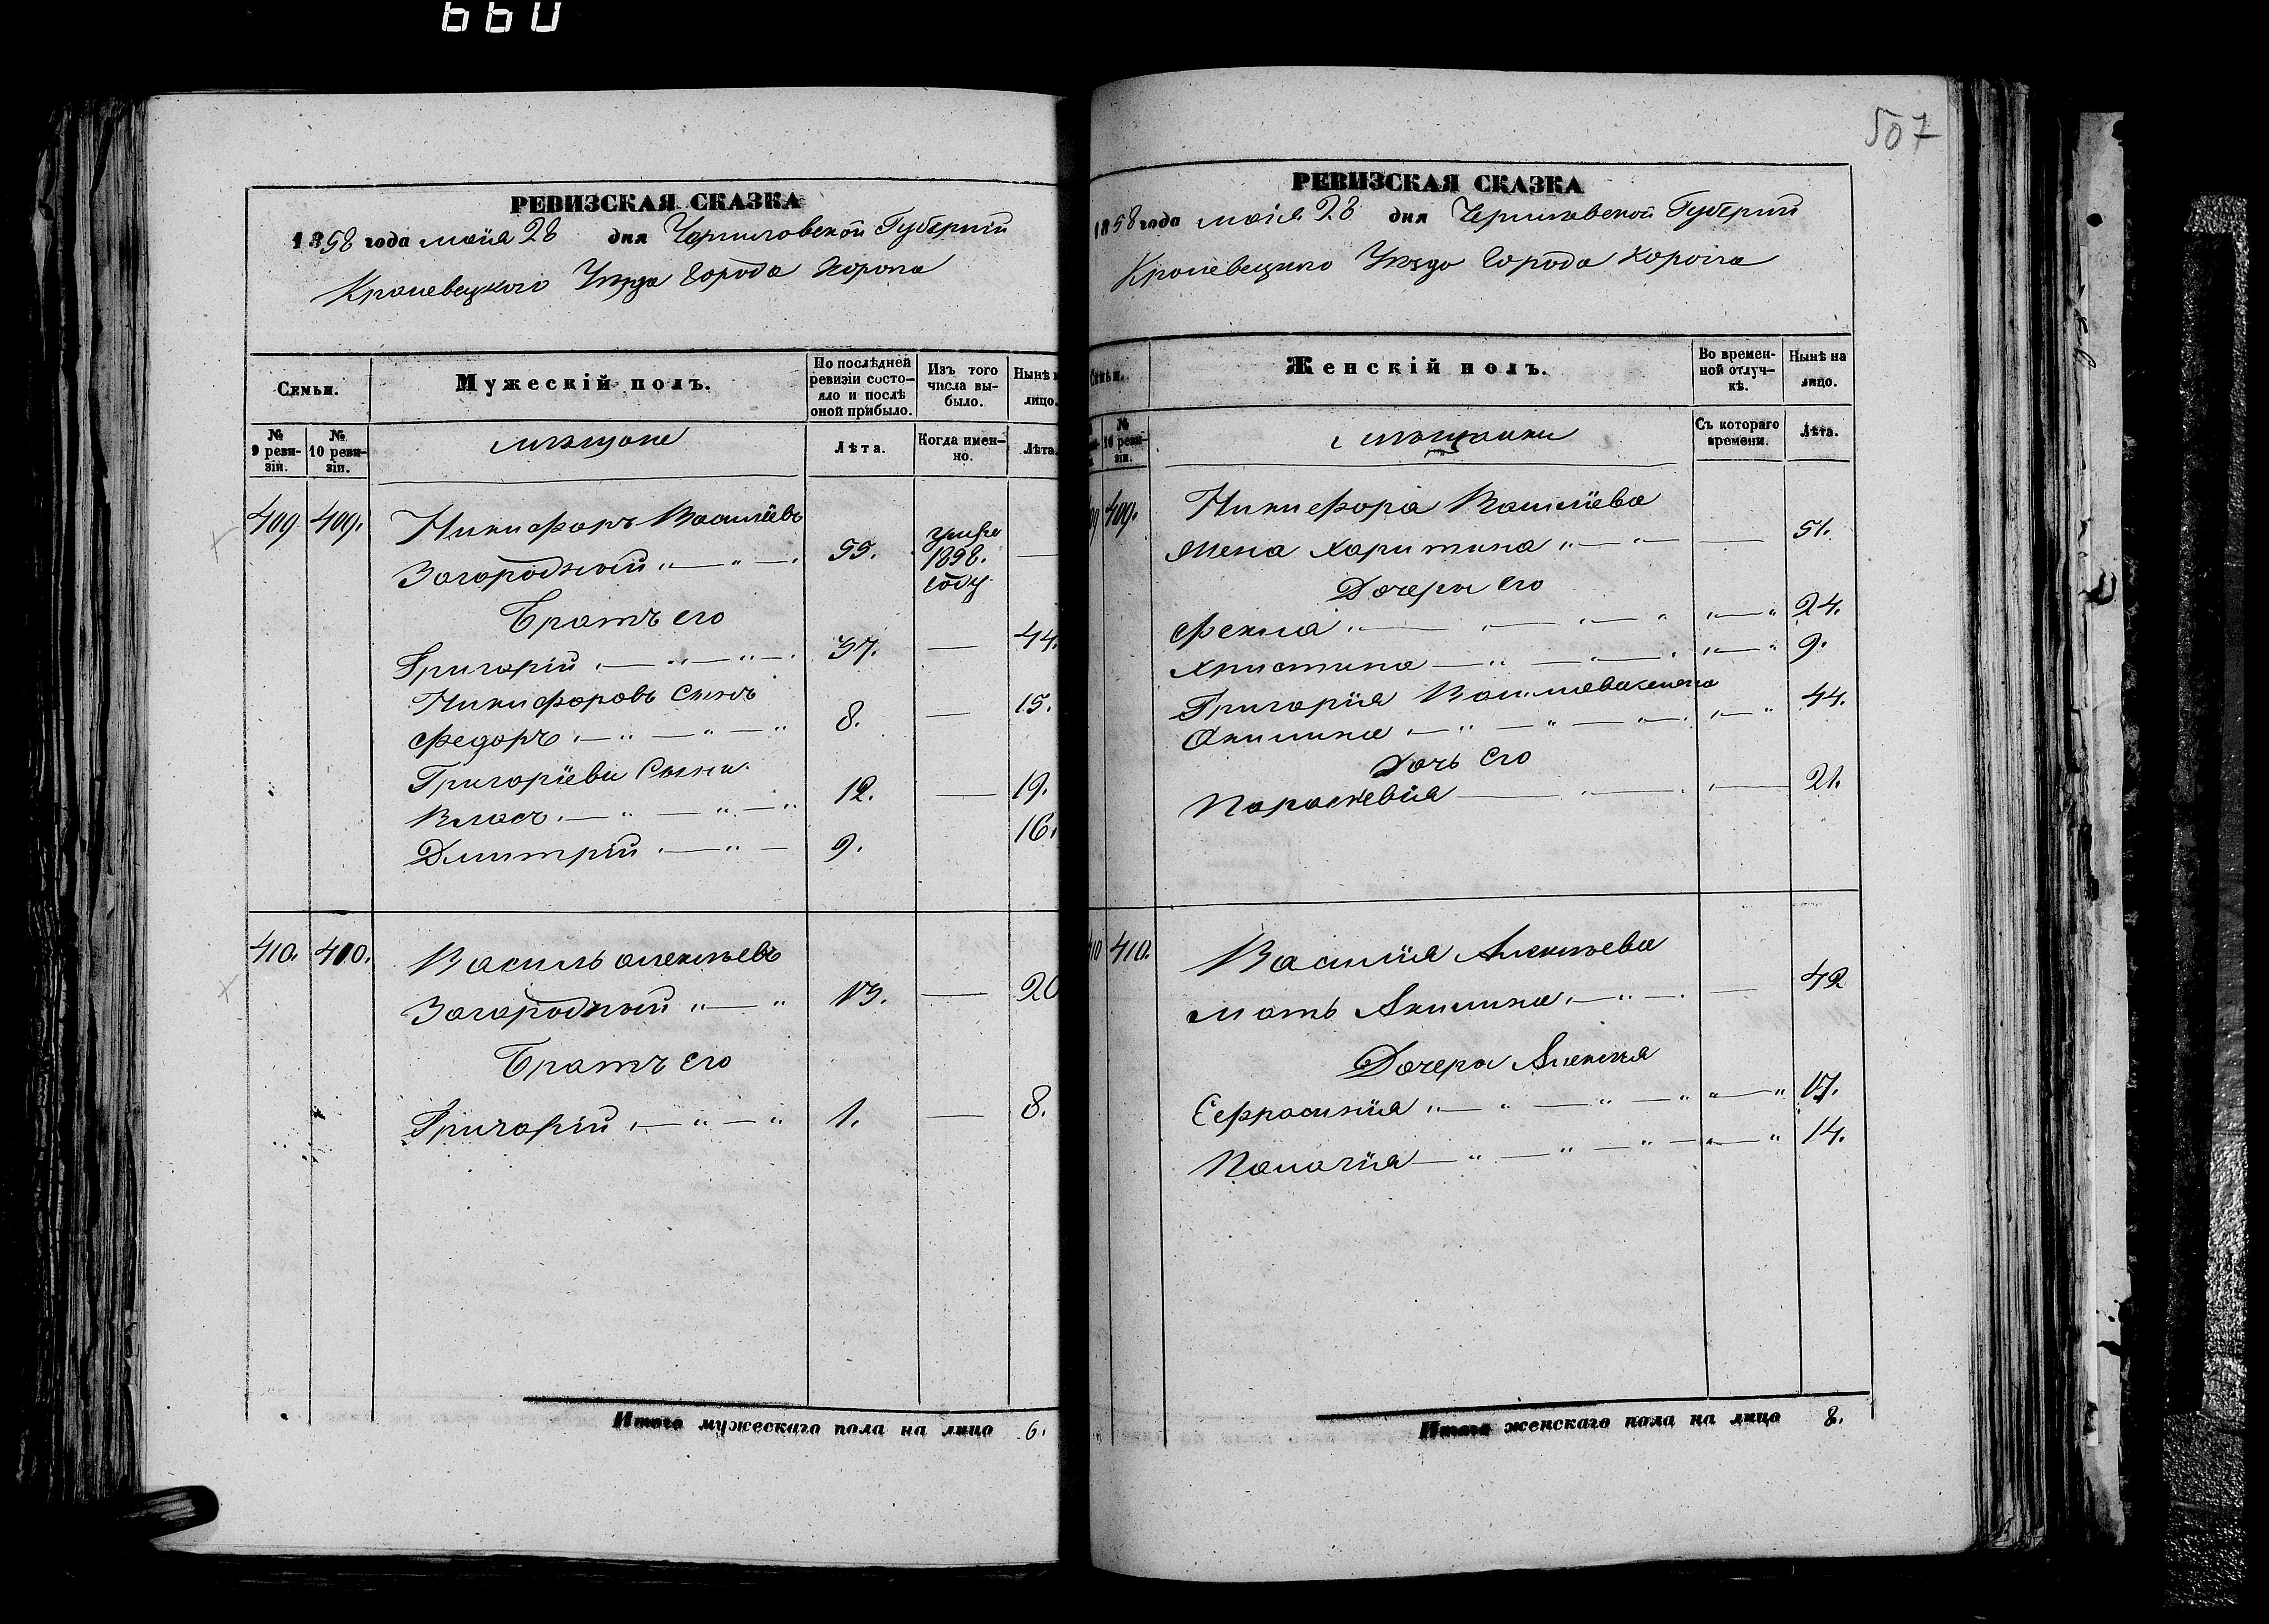 660
507
РЕВИЗСКАЯ СКАЗКА
1858 года маія 28 дня Черниговской Губерніи
Кролевецкаго Уезда Города Коропа
Семьи.
Мужескій полъ.
По послѣдней ревизіи состояло и послѣ оной прибыло.
Изъ того числа выбыло.
Нынѣ на лицо.
№ 9 ревизіи.
№ 10 ревизіи.
мѣщане
Лѣта.
Когда именно.
Лѣта.
409. 409. Никифоръ Васильевъ
Загородный „ — „ — . 55. умре 1858. году —
Братъ его
Григорій . — „ — „ — . 37. — 44.
Никифоровъ Сынъ
Федоръ . — „ — „ — „ 8. — 15.
Григоріевы Сыны
Власъ . — „ — „ — „ 12. — 19.
Дмитрій . — „ — 9. 16.
410. 410. Василь Алексѣевъ
Загородный „ — „ 13. — 20
Братъ его
Григорій . — „ — „ 1. — 8.
Итого мужескаго пола на лицо 6.
РЕВИЗСКАЯ СКАЗКА
1858 года маія 28 дня Черниговской Губерніи
Кролевецкаго Уезда Города Коропа
Семьи.
Женскій полъ.
Во временной отлучкѣ.
Нынѣ на лицо.
№ 10 ревизіи.
мѣщанки
Съ котораго времени.
Лѣта.
409. Никифора Васильева
Жена Харитина „ — „ — — 51.
Дочери его
Фекла . — . — . — „ . — „ 24.
Христина — „ — . — . . — „ 9.
Григорія Васильева жена
Акилина . — „ — „ — . — . . — „ 44.
Дочь его
Параскевія — . — . . — 21.
410 410. Василія Алексѣева
Мать Акилина . — „ — . — 42
Дочери Алексѣя
Ефросинія „ — „ — „ — „ „ — „ 17.
Палагія — „ — „ — „ — . — „ 14.
Итого женскаго пола на лицо 8.